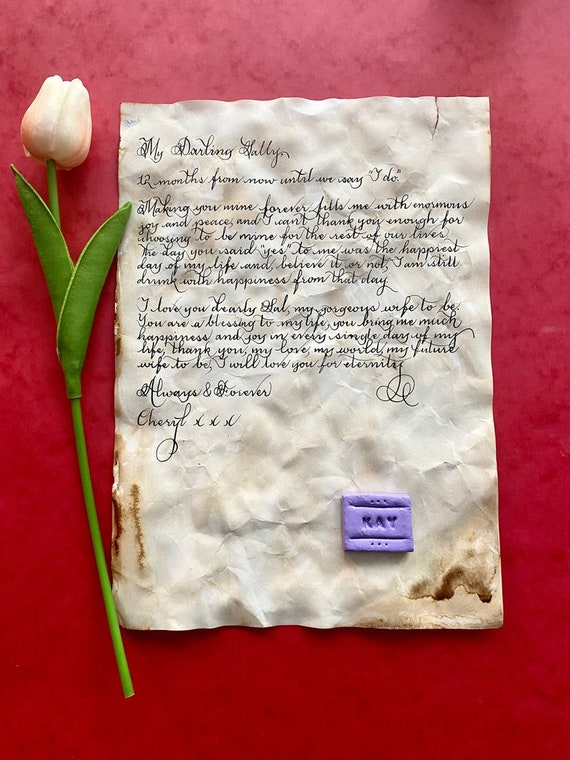 My Darling Sally,
12 months from now until we say "I do."
Making you mine forever fills me with enormous
joy and peace, and I can't thank you enough for
choosing to be mine for the rest of our lives.
The day you said "yes" to me was the happiest
day of my life and, believe it or not, I am still
drunk with happiness from that day.
I love you dearly Sal, my gorgeoys wife to be.
You are a blessing to my life, you bring me much
happiness and joy in every single day of my
life, thank you, my love, my world, my future
wife to be, I will love you for eternity
Always & Forever
Cheryl x x x
KAY